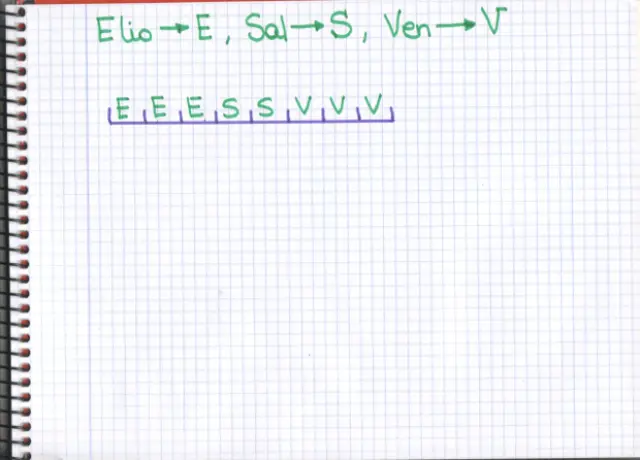 Elio → E, Sal → S, Ven → V
E E E S S V V V